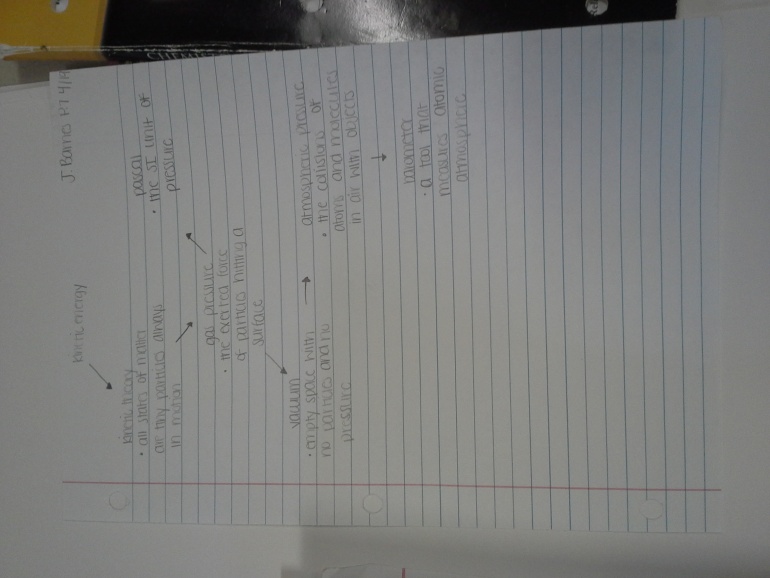 J Barrios P.7
kinetic energy
kinetic theory
• all states of matter
are tiny particles always
in motion
pascal
• the SI unit of
pressure
gas pressure
• the excited force
of particles hitting a
surface
vacuum
• empty space with
no particles and no
pressure
atmospheric pressure
• the collisions of
atoms and molecules
in air with objects
barometer
• a tool that
measures atomic
atmospheric